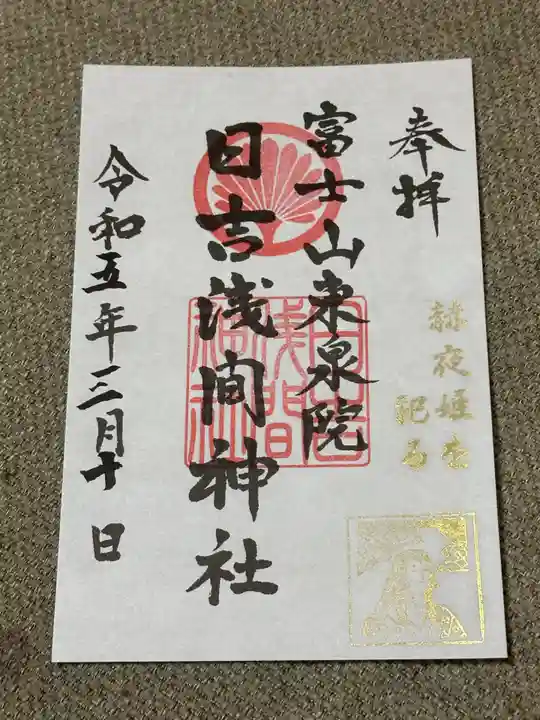 奉拝
赫夜姫を
祀る
富士山東泉院
日吉浅間神社
令和五年三月十日